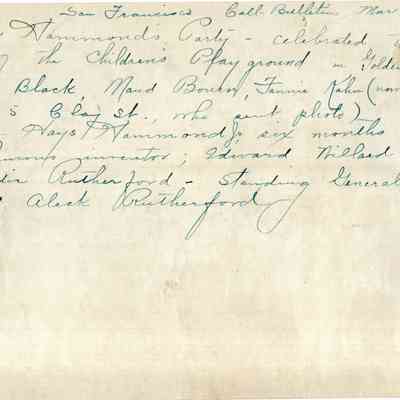 San Francisco Call-Bulletin Mar
Hammonds Party - celebrated
of the Children's Playground in Golden
Black, Maud Bourn, Fannie Kahn (now
5 Clay St., who sent photo)
Hays Hammond Jr six months
famous inventor; Edward Willard
Rutherford - Standing General
Aleck Rutherford